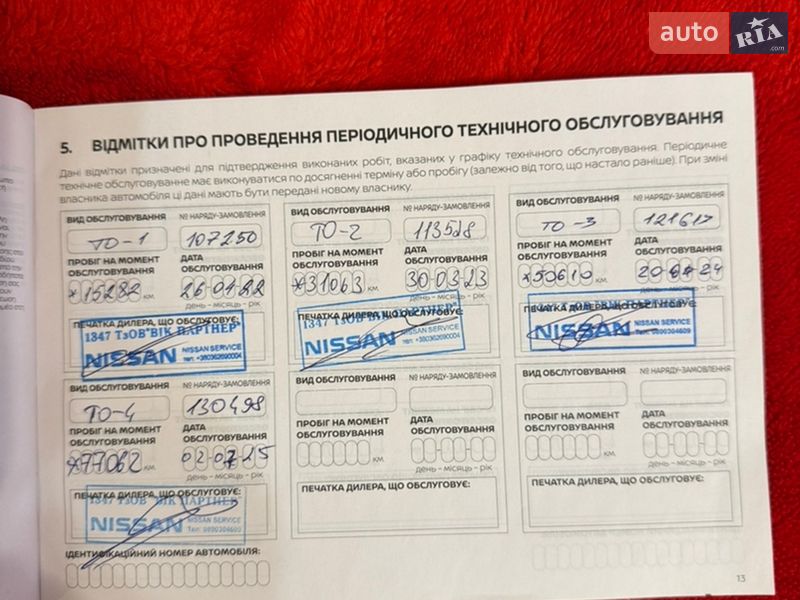 auto RIA .com
5. ВІДМІТКИ ПРО ПРОВЕДЕННЯ ПЕРІОДИЧНОГО ТЕХНІЧНОГО ОБСЛУГОВУВАННЯ
Дані відмітки призначені для підтвердження виконаних робіт, вказаних у графіку технічного обслуговування. Періодичне
технічне обслуговуванне має виконуватися по досягненні терміну або пробігу (залежно від того, що настало раніше). При зміні
власника автомобіля ці дані мають бути передані новому власнику.
ВИД ОБСЛУГОВУВАННЯ № НАРЯДУ-ЗАМОВЛЕННЯ
ТО-1 107250
ПРОБІГ НА МОМЕНТ ОБСЛУГОВУВАННЯ ДАТА ОБСЛУГОВУВАННЯ
*15282 км.
день – місяць – рік
ПЕЧАТКА ДИЛЕРА, ЩО ОБСЛУГОВУЄ:
1347 ТзОВ"ВІК ПАРТНЕР"
NISSAN NISSAN SERVICE
тел: +380362690004
ВИД ОБСЛУГОВУВАННЯ № НАРЯДУ-ЗАМОВЛЕННЯ
ТО-2 113528
ПРОБІГ НА МОМЕНТ ОБСЛУГОВУВАННЯ ДАТА ОБСЛУГОВУВАННЯ
*31063 км. 30 03 23
день – місяць – рік
ПЕЧАТКА ДИЛЕРА, ЩО ОБСЛУГОВУЄ:
1347 ТзОВ
NISSAN NISSAN SERVICE
тел: +380362690004
ВИД ОБСЛУГОВУВАННЯ № НАРЯДУ-ЗАМОВЛЕННЯ
ТО-3 121617
ПРОБІГ НА МОМЕНТ ОБСЛУГОВУВАННЯ ДАТА ОБСЛУГОВУВАННЯ
*50610 км.
день – місяць – рік
ПЕЧАТКА ДИЛЕРА, ЩО ОБСЛУГОВУЄ:
NISSAN NISSAN SERVICE
ВИД ОБСЛУГОВУВАННЯ № НАРЯДУ-ЗАМОВЛЕННЯ
ТО-4 130498
ПРОБІГ НА МОМЕНТ ОБСЛУГОВУВАННЯ ДАТА ОБСЛУГОВУВАННЯ
*77062 км. 02 07 25
день – місяць – рік
ПЕЧАТКА ДИЛЕРА, ЩО ОБСЛУГОВУЄ:
1347 ТЗОВ "ВІК ПАРТНЕР"
NISSAN NISSAN SERVICE
ВИД ОБСЛУГОВУВАННЯ № НАРЯДУ-ЗАМОВЛЕННЯ
ПРОБІГ НА МОМЕНТ ОБСЛУГОВУВАННЯ ДАТА ОБСЛУГОВУВАННЯ
км.
день – місяць – рік
ПЕЧАТКА ДИЛЕРА, ЩО ОБСЛУГОВУЄ:
ВИД ОБСЛУГОВУВАННЯ № НАРЯДУ-ЗАМОВЛЕННЯ
ПРОБІГ НА МОМЕНТ ОБСЛУГОВУВАННЯ ДАТА ОБСЛУГОВУВАННЯ
км.
день – місяць – рік
ПЕЧАТКА ДИЛЕРА, ЩО ОБСЛУГОВУЄ:
ІДЕНТИФІКАЦІЙНИЙ НОМЕР АВТОМОБІЛЯ:
13